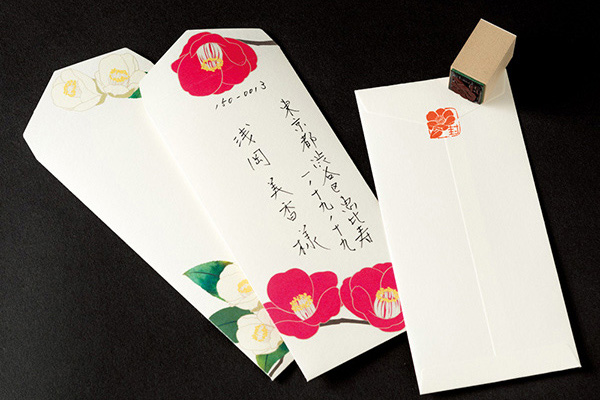 150-0013
東京都渋谷区恵比寿
一ノ十九ノ十九
浅岡 美香様